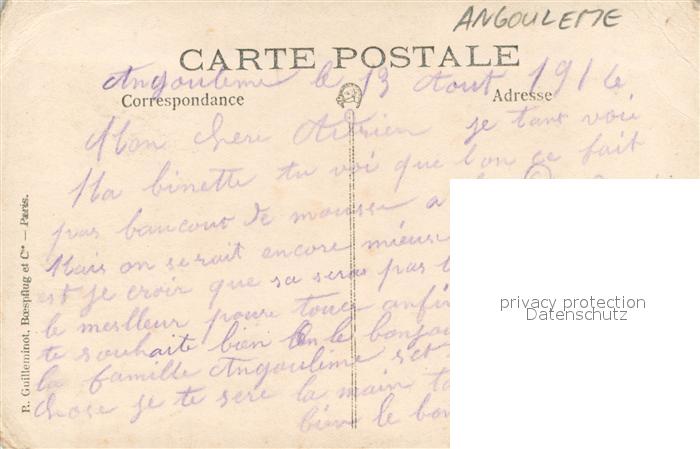 ANGOULEME
CARTE POSTALE
Angouleme le 13 Aout 1914
Correspondance
Adresse
Mon chere Adrien je tant voie
Ma binette tu voi que l'on ce fait
pas baucout de mousse a
Mais on serait encore mieux
est je croir que sa seras pas
le mestleur poure touce anfin
te souhaite bien le bonjou
la famille Angoulème s'et
chose je te sere la main
bien le bon
R. Guilleminot, Bœspflug et Cie — Paris.
privacy protection
Datenschutz